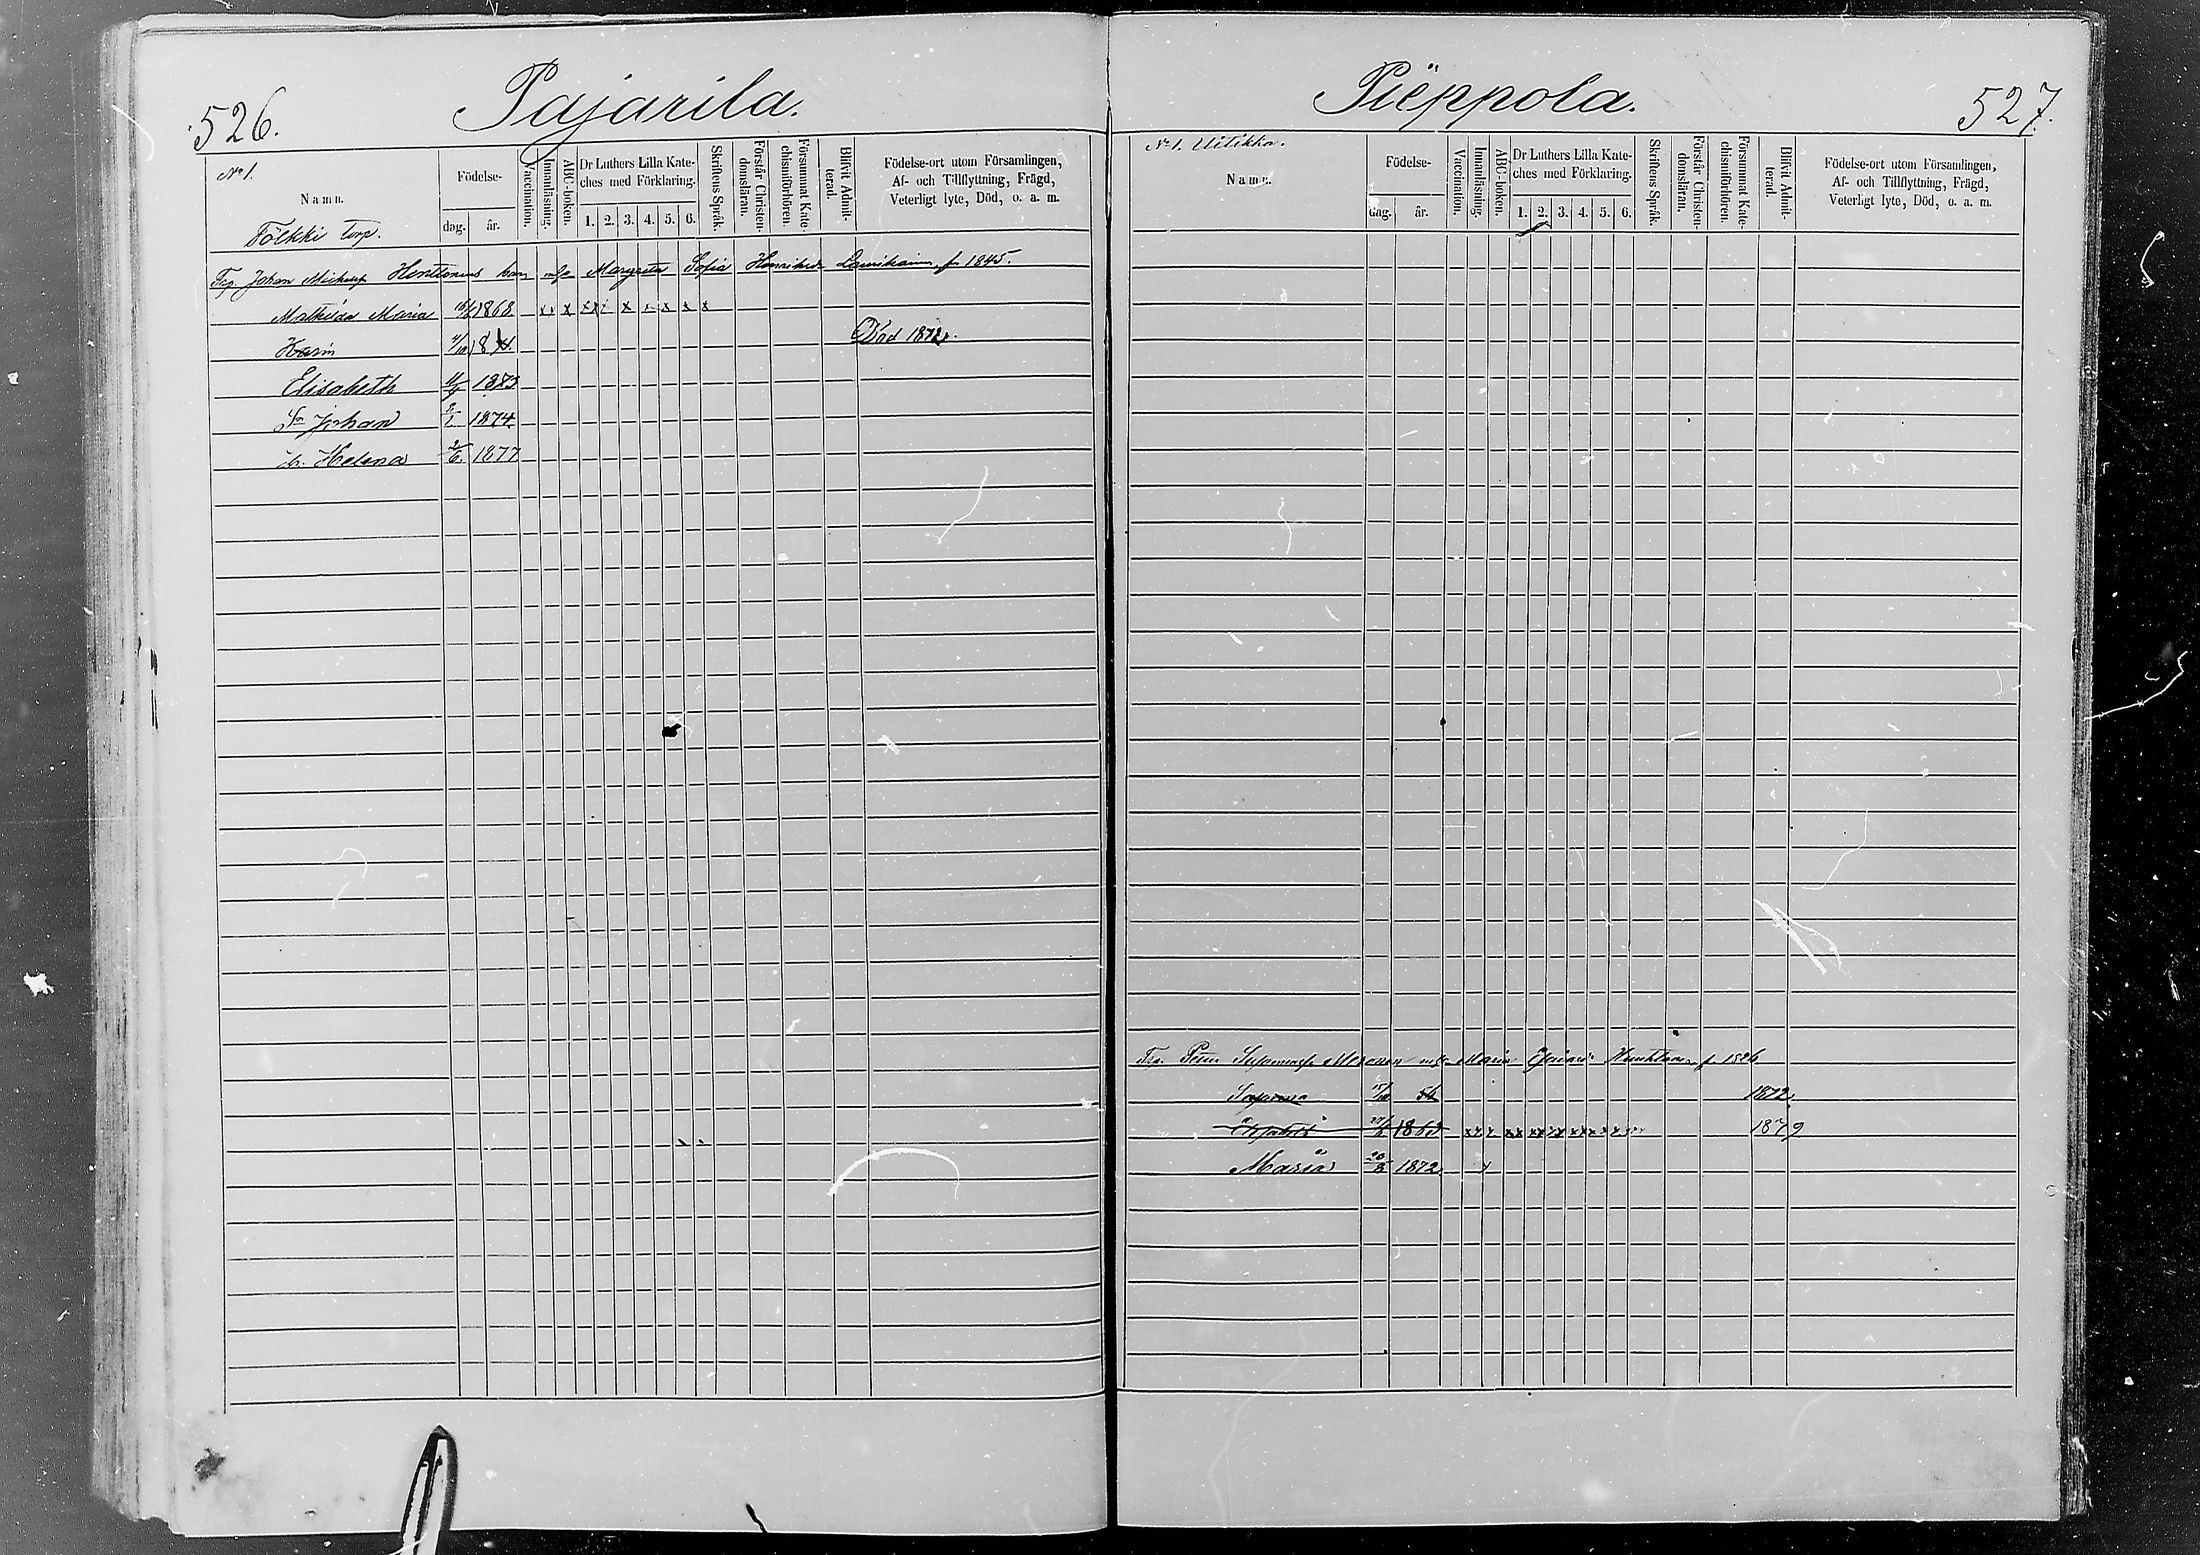 526.
Pajarila.
No 1.
Namn.
Födelse-
dag. år.
Vaccination.
Innanläsning.
ABC-boken.
Dr Luthers Lilla Kate-
ches med Förklaring.
1. 2. 3. 4. 5. 6.
Skriftens Språk.
Förstår Christen-
domsläran.
Försummat Kate-
chismiförhören.
Blifvit Admit-
terad.
Födelse-ort utom Församlingen,
Af- och Tillflyttning, Frägd,
Veterligt lyte, Död, o. a. m.
Fölkki torp.
Trp. Johan Henttonens barn m/ Margreta Sofia Lamikainen f. 1845.
Mathilda Maria 1868 x x x x x x x x x
Karin Död 1872.
Elisabeth 11/9 1873
Sn Johan 1874
Helena 2/6 1877
Piëppola.
527.
No 1. Uitikka.
Namn.
Födelse-
dag. år.
Vaccination.
Innanläsning.
ABC-boken.
Dr Luthers Lilla Kate-
ches med Förklaring.
1. 2. 3. 4. 5. 6.
Skriftens Språk.
Förstår Christen-
domsläran.
Försummat Kate-
chismiförhören.
Blifvit Admit-
terad.
Födelse-ort utom Församlingen,
Af- och Tillflyttning, Frägd,
Veterligt lyte, Död, o. a. m.
Trp. Petter Maria f. 1826
1872
1879
Maria 20/8 1872